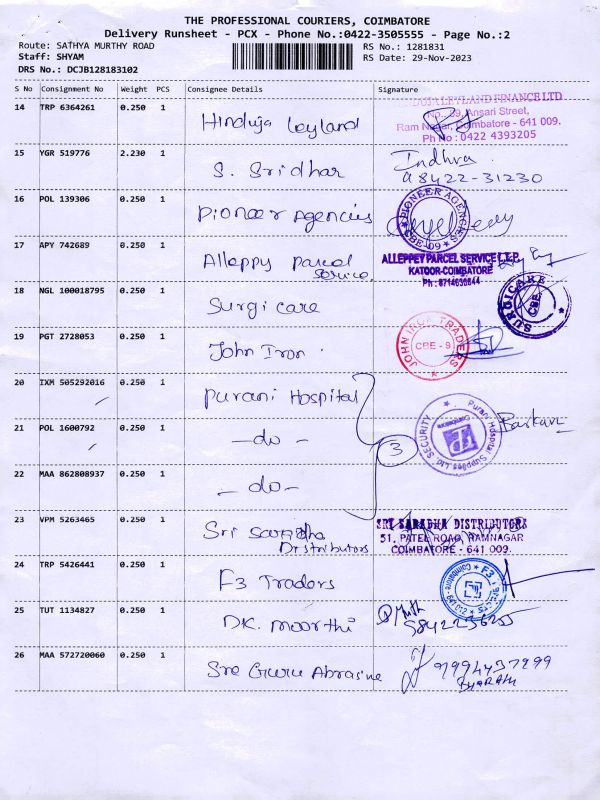 THE PROFESSIONAL COURIERS, COIMBATORE
Delivery Runsheet - PCX - Phone No.:0422-3505555 - Page No.:2
Route: SATHYA MURTHY ROAD
RS No.: 1281831
Staff: SHYAM
RS Date: 29-Nov-2023
DRS No.: DCJB128183102
S No Consignment No Weight PCS Consignee Details Signature
14 TRP 6364261 0.250 1 Hinduja Leyland
LEYLAND FINANCE LTD
No. 39, Ansari Street,
Ram Nagar, Coimbatore - 641 009.
Ph No : 0422 4393205
15 YGR 519776 2.230 1 S. Sridhar Indhra
98422-31230
16 POL 139306 0.250 1 Pioneer Agencies
PIONEER AGENCIES
CBE-09
17 APY 742689 0.250 1 Alleppy Parcel
Service
ALLEPPEY PARCEL SERVICE
KATOOR-COIMBATORE
Ph : 8714630644
18 NGL 100018795 0.250 1 Surgi care
SURGICARE
CBE
19 PGT 2728053 0.250 1 John Iron
JOHN IRON TRADERS
CBE - 9
20 IXM 505292016 0.250 1 Purani Hospital
21 POL 1600792 0.250 1 -do-
3
Purani Hospital Supplies Ltd
SECURITY
Coimbatore
22 MAA 862808937 0.250 1 -do-
23 VPM 5263465 0.250 1 Sri Saradha
Distributors
SRI SARADHA DISTRIBUTORS
51, PATEL ROAD, RAMNAGAR
COIMBATORE - 641 009.
24 TRP 5426441 0.250 1 F3 Traders
25 TUT 1134827 0.250 1 DK. moorthi
26 MAA 572720060 0.250 1 Sre Guru Abrasive
9994437299
BHARATH